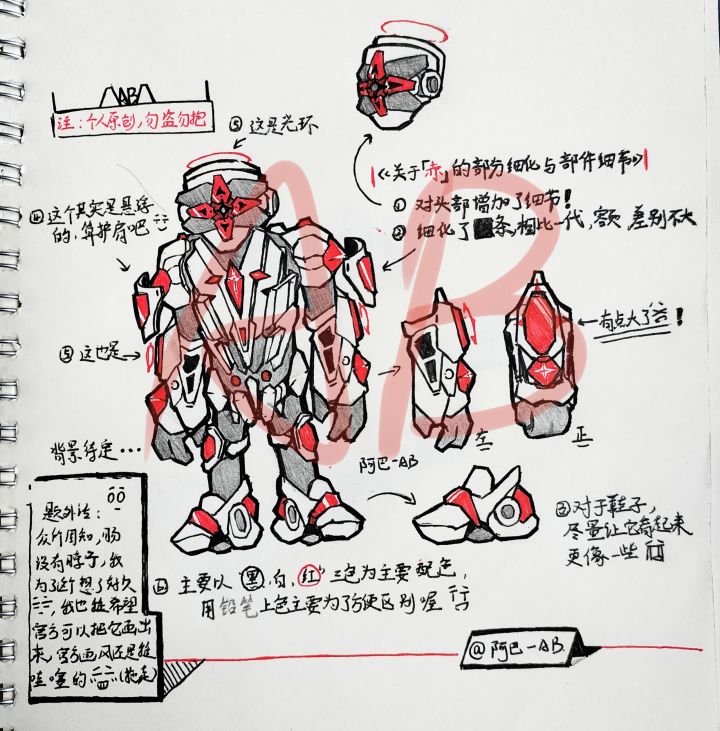 AB
注：个人原创，勿盗勿抱
⑤ 这是光环
《关于「赤」的部分细化与部件细节》
① 对头部增加了细节！
② 细化了条，相比一代，容貌差别不大
④ 这个其实是悬浮
的，算护肩吧
有点大了
！
⑤ 这也是
左
正
背景待定…
阿巴-AB
③ 对于鞋子，
尽量让它看起来
更像一些
题外话：
众所周知，肠
没有脖子，我
为了这个想了好久
，我也挺希望
官方可以把它画出
来，官方画风还是挺
哇塞的 (拖走)
⑥ 主要以"黑，白，红"三色为主要配色，
用铅笔上色主要为了方便区别喔
@阿巴-AB.
AB